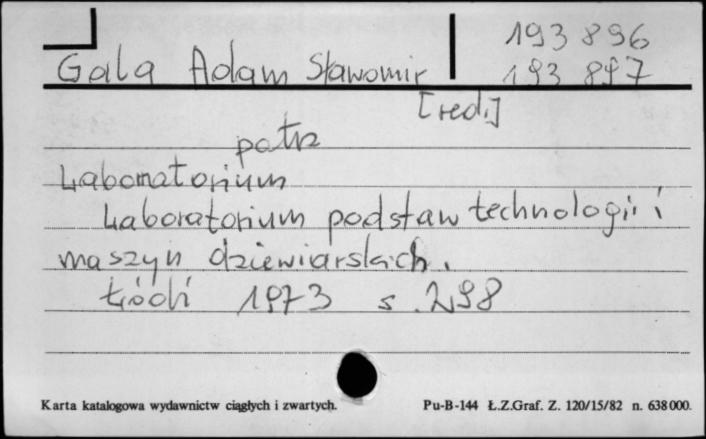 193 896
Gala Adam Sławomir 193 897
[red.]
patrz
Laboratorium
Laboratorium podstaw technologii i
maszyn dziewiarskich.
Łódź 1973 s. 298
Karta katalogowa wydawnictw ciągłych i zwartych. Pu-B-144 Ł.Z.Graf. Z. 120/15/82 n. 638 000.